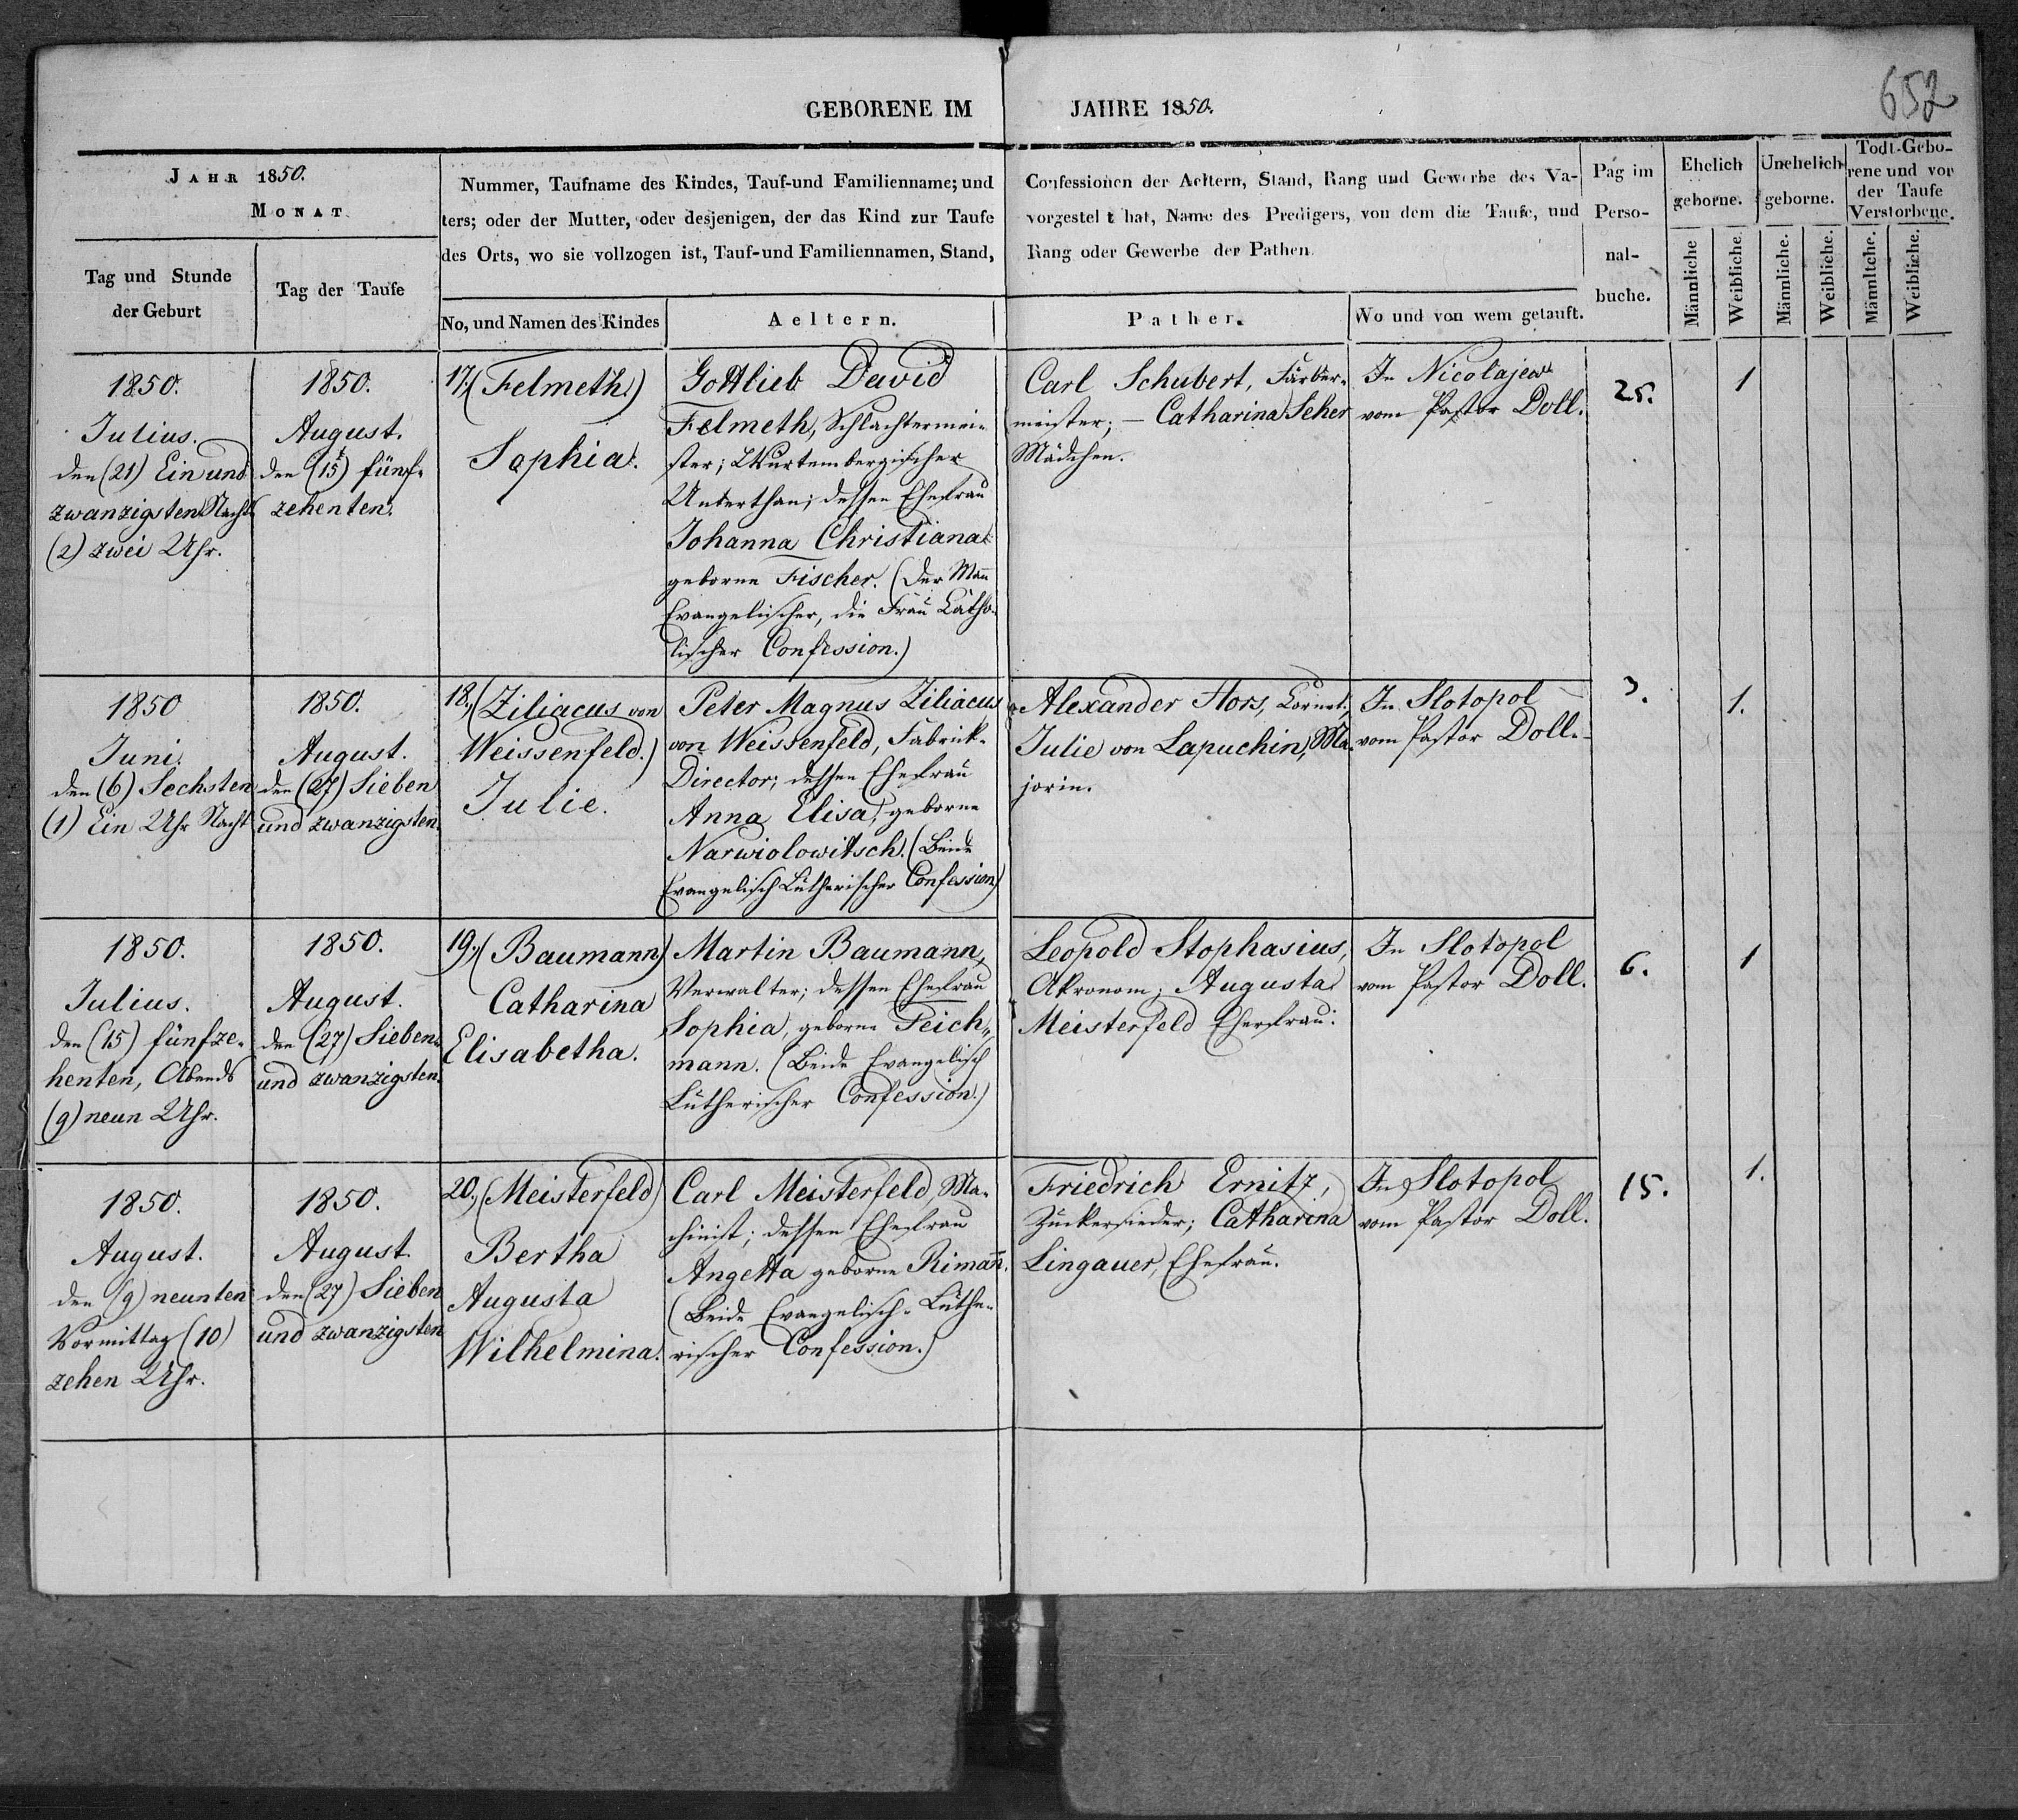 652
GEBORENE IM JAHRE 1850.
JAHR 1850.
MONAT
Tag und Stunde
der Geburt
Tag der Taufe
Nummer, Taufname des Kindes, Tauf-und Familienname; und Confessionen der Aeltern, Stand, Rang und Gewerbe des Va-
ters; oder der Mutter, oder desjenigen, der das Kind zur Taufe vorgestellt hat, Name des Predigers, von dem die Taufe, und
des Orts, wo sie vollzogen ist, Tauf-und Familiennamen, Stand, Rang oder Gewerbe der Pathen
No, und Namen des Kindes
Aeltern.
Pather.
Wo und von wem getauft.
Pag im
Perso-
nal-
buche.
Ehelich
geborne.
Unehelich
geborne.
Todt-Gebo-
rene und vor
der Taufe
Verstorbene.
Männliche
Weibliche.
Männliche.
Weibliche.
Männltche.
Weibliche.
1850.
Julius.
den (21) Ein und
zwanzigsten Nacht
(2) zwei Uhr.
1850.
August.
den (15) fünf-
zehenten.
17, (Felmeth.)
Sophia.
Gottlieb David
Felmeth, Schlachtermei-
ster; Wurtembergischer
Unterthan; dessen Ehefrau
Johanna Christiana
geborne Fischer. (Der Mann
Evangelischer, die Frau Catho-
lischer Confession.)
Carl Schubert, Färber-
meister; – Catharina Seher
Mädchen.
In Nicolajew
vom Pastor Doll.
25.
1
1850
Juni.
den (6) Sechsten
(1) Ein Uhr Nacht
1850.
August.
den (27) Sieben
und zwanzigsten.
18., (Ziliacus von
Weissenfeld.)
Julie.
Peter Magnus Ziliacus
von Weissenfeld, Fabrick-
Director; dessen Ehefrau
Anna Elisa, geborne
Narwiolowitsch. (Beide
Evangelisch Lutherischer Confession)
Alexander Hors, Cornet,
Julie von Lapuchin, Ma-
jorin.
In Slotopol
vom Pastor Doll.
3.
1.
1850.
Julius.
den (15) fünfze-
henten, Abends
(9) neun Uhr.
1850.
August.
den (27) Sieben
und zwanzigsten.
19., (Baumann)
Catharina
Elisabetha.
Martin Baumann,
Verwalter; dessen Ehefrau
Sophia, geborne Teich-
mann. (Beide Evangelisch
Lutherischer Confession.)
Leopold Stophasius,
Akronom; Augusta
Meisterfeld Ehefrau.
In Slotopol
vom Pastor Doll.
6.
1
1850.
August.
den (9) neunten
Vormittag (10)
zehen Uhr.
1850.
August.
den (27) Sieben
und zwanzigsten
20., (Meisterfeld)
Bertha
Augusta
Wilhelmina.
Carl Meisterfeld, Ma-
chinist; dessen Ehefrau
Angetta geborne Rimann.
(Beide Evangelisch-Luthe-
rischer Confession.)
Friedrich Ernitz,
Zuckersieder; Catharina
Lingauer, Ehefrau.
In Slotopol
vom Pastor Doll.
15.
1.